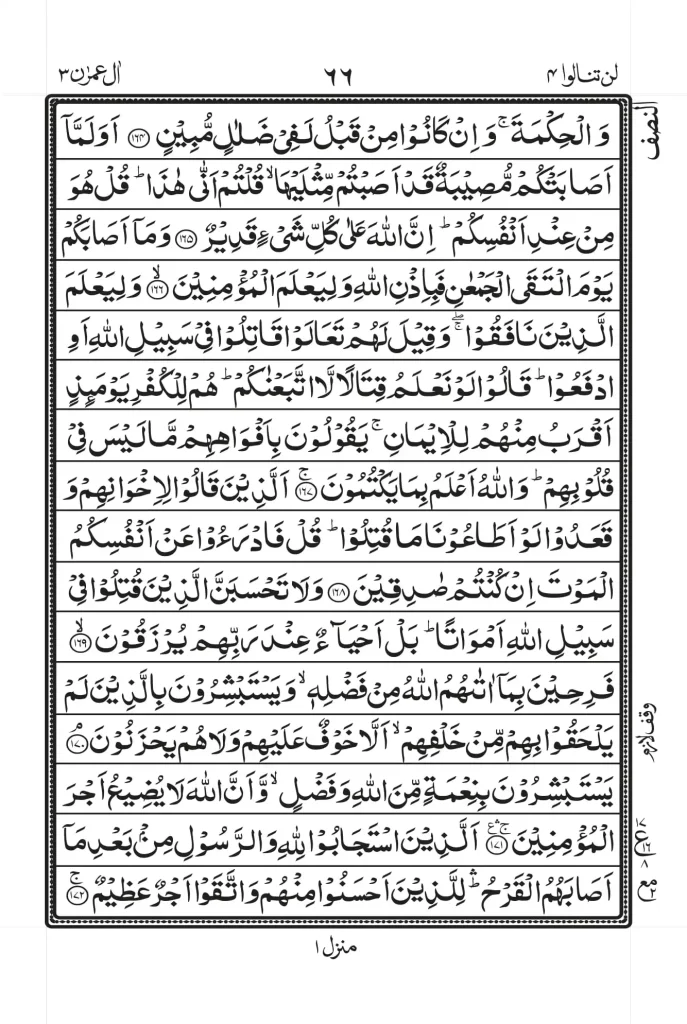 لن تنالوا ۴
۶۶
اٰل عمرٰن ۳
النصف
وَالۡحِكۡمَةَ ۚ وَاِنۡ كَانُوۡا مِنۡ قَبۡلُ لَفِىۡ ضَلٰلٍ مُّبِيۡنٍ ﴿۱۶۴﴾ اَوَلَمَّاۤ
اَصَابَتۡكُمۡ مُّصِيۡبَةٌ قَدۡ اَصَبۡتُمۡ مِّثۡلَيۡهَا ۙ قُلۡتُمۡ اَنّٰى هٰذَا ؕ قُلۡ هُوَ
مِنۡ عِنۡدِ اَنۡفُسِكُمۡ ؕ اِنَّ اللّٰهَ عَلٰى كُلِّ شَىۡءٍ قَدِيۡرٌ ﴿۱۶۵﴾ وَمَاۤ اَصَابَكُمۡ
يَوۡمَ الۡتَقَى الۡجَمۡعٰنِ فَبِاِذۡنِ اللّٰهِ وَلِيَعۡلَمَ الۡمُؤۡمِنِيۡنَ ۙ ﴿۱۶۶﴾ وَلِيَعۡلَمَ
الَّذِيۡنَ نَافَقُوۡا ۖۚ وَقِيۡلَ لَهُمۡ تَعَالَوۡا قَاتِلُوۡا فِىۡ سَبِيۡلِ اللّٰهِ اَوِ
ادۡفَعُوۡا ؕ قَالُوۡا لَوۡ نَعۡلَمُ قِتَالًا لَّا اتَّبَعۡنٰكُمۡ ؕ هُمۡ لِلۡكُفۡرِ يَوۡمَٮِٕذٍ
اَقۡرَبُ مِنۡهُمۡ لِلۡاِيۡمَانِ ۚ يَقُوۡلُوۡنَ بِاَفۡوَاهِهِمۡ مَّا لَيۡسَ فِىۡ
قُلُوۡبِهِمۡ ؕ وَاللّٰهُ اَعۡلَمُ بِمَا يَكۡتُمُوۡنَ ۚ ﴿۱۶۷﴾ اَلَّذِيۡنَ قَالُوۡا لِاِخۡوَانِهِمۡ وَ
قَعَدُوۡا لَوۡ اَطَاعُوۡنَا مَا قُتِلُوۡا ؕ قُلۡ فَادۡرَءُوۡا عَنۡ اَنۡفُسِكُمُ
الۡمَوۡتَ اِنۡ كُنۡتُمۡ صٰدِقِيۡنَ ﴿۱۶۸﴾ وَلَا تَحۡسَبَنَّ الَّذِيۡنَ قُتِلُوۡا فِىۡ
سَبِيۡلِ اللّٰهِ اَمۡوَاتًا ؕ بَلۡ اَحۡيَآءٌ عِنۡدَ رَبِّهِمۡ يُرۡزَقُوۡنَ ۙ ﴿۱۶۹﴾
فَرِحِيۡنَ بِمَاۤ اٰتٰٮهُمُ اللّٰهُ مِنۡ فَضۡلِهٖ ۙ وَيَسۡتَبۡشِرُوۡنَ بِالَّذِيۡنَ لَمۡ
يَلۡحَقُوۡا بِهِمۡ مِّنۡ خَلۡفِهِمۡ ۙ اَلَّا خَوۡفٌ عَلَيۡهِمۡ وَلَا هُمۡ يَحۡزَنُوۡنَ ۘ ﴿۱۷۰﴾
وقف لازم
يَسۡتَبۡشِرُوۡنَ بِنِعۡمَةٍ مِّنَ اللّٰهِ وَفَضۡلٍ ۙ وَّاَنَّ اللّٰهَ لَا يُضِيۡعُ اَجۡرَ
الۡمُؤۡمِنِيۡنَ ۛۚ ﴿۱۷۱﴾ اَلَّذِيۡنَ اسۡتَجَابُوۡا لِلّٰهِ وَالرَّسُوۡلِ مِنۡۢ بَعۡدِ مَاۤ
اَصَابَهُمُ الۡقَرۡحُ ۛؕ لِلَّذِيۡنَ اَحۡسَنُوۡا مِنۡهُمۡ وَاتَّقَوۡا اَجۡرٌ عَظِيۡمٌ ۚ ﴿۱۷۲﴾
منزل ۱